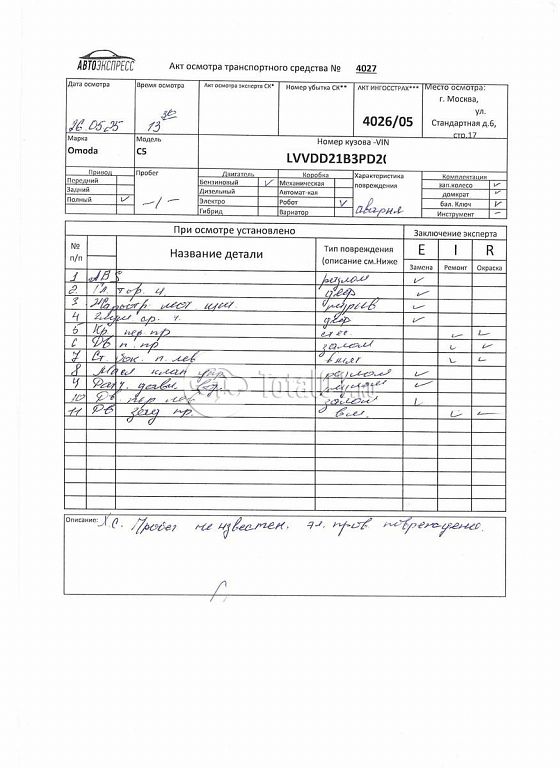 АВТОЭКСПРЕСС
Акт осмотра транспортного средства № 4027
Дата осмотра Время осмотра Акт осмотра эксперта СК* Номер убытка СК** АКТ ИНГОССТРАХ*** Место осмотра:
г. Москва,
ул.
Стандартная д.6,
стр.17
26.05.25 13 30 4026/05
Марка Модель Номер кузова -VIN
Omoda C5 LVVDD21B3PD2(
Привод Пробег Двигатель Коробка Характеристика повреждения Комплектация
Передний Бензиновый ✓ Механическая зап.колесо ✓
Задний Дизельный Автомат-кая домкрат ✓
Полный ✓ -/- Электро Робот ✓ авария бал. Ключ ✓
Гибрид Вариатор Инструмент -
При осмотре установлено Заключение эксперта
№ п/п Название детали Тип повреждения (описание см.Ниже E I R
Замена Ремонт Окраска
1 ABS разлом ✓
2. Гл. тор. ч деф ✓
3 ✓
4 Глуш ср. ч. деф ✓
5 Кр. пер. пр ✓ ✓
6 Дв п. пр залом ✓ ✓
7 Ст. бок. п. лев ✓ ✓
8 клап разлом ✓
9 Датч. давл. ✓
10 Дв пер лев залом ✓
11 Дв зад пр. вм. ✓ ✓
Описание: Х.С. Пробег не известен. Эл. пров. повреждено.
TotalCar